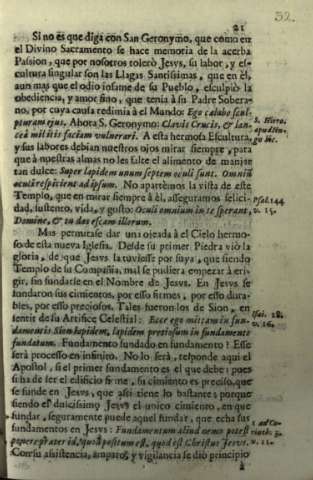 21
32.
Si no es que diga con San Geronymo, que como en
el Divino Sacramento se hace memoria de la acerba
Passion, que por nosotros tolerò Jesvs, su labor, y es-
cultura singular son las Llagas Santissimas, que en èl,
aun mas que el odio infame de su Pueblo, esculpiò la
obediencia, y amor fino, que tenia à su Padre Sobera-
no, por cuya causa redimia à el Mundo: Ego cælabo scul-
pturam ejus. Ahora S. Geronymo: Clavis Crucis, & lan-
cea militis faciam vulnerari. A esta hermosa Escultura,
y sus labores debian nuestros ojos mirar siempre, para
que à nuestras almas no les falte el alimento de manjar
tan dulce: Super lapidem unum septem oculi sunt. Omniũ
oculi respicient ad ipsum. No apartèmos la vista de este
Templo, que en mirar siempre à èl, asseguramos felici-
dad, sustento, vida, y gusto: Oculi omnium in te sperant,
Domine, & tu das escam illorum.
S. Hiero.
apud
hic.
Psal. 144
v. 15.
Mas permitase dar una ojeada à el Cielo hermo-
so de esta nueva Iglesia. Desde su primer Piedra viò la
gloria, de que Jesvs la tuviesse por suya, que siendo
Templo de su Compañia, mal se pudiera empezar à eri-
gir, sin fundarse en el Nombre de Jesvs. En Jesvs se
fundaron sus cimientos, por esso firmes, por esso dura-
bles, por esso preciosos. Tales fueron los de Sion, en
sentir de su Artifice Celestial: Ecce ego mittam in fun-
damentis Sion lapidem, lapidem pretiosum in fundamento
fundatum. Fundamento fundado en fundamento? Esse
serà processo en infinito. No lo serà, responde aqui el
Apostol, si el primer fundamento es el que debe: pues
si ha de ser el edificio firme, su cimiento es preciso, que
se funde en Jesvs, que assi tiene lo bastante; porque
siendo el dulcissimo Jesvs el unico cimiento, en que
fundar, seguramente puede aquel fundar, que echa sus
fundamentos en Jesvs: Fundamentum aliud nemo potest
ponere præter id, quod positum est, quod est Christus Jesus.
Con su asistencia, amparo, y vigilancia se diò principio
Isai. 28.
v. 16.
1. ad Co-
rinth. 3.
v. 11.
à